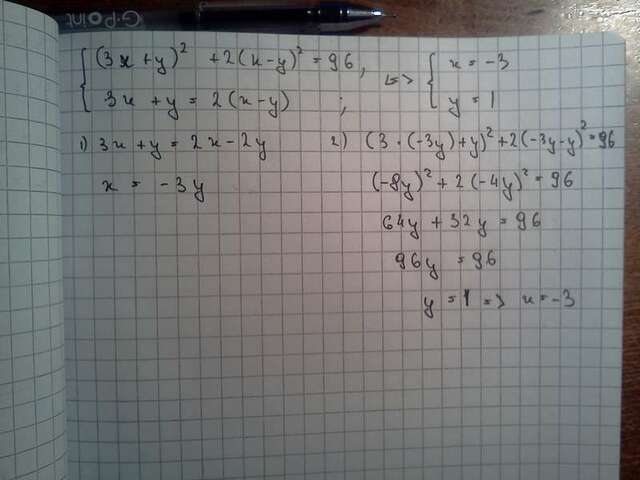 G-Point
{ (3x+y)² + 2(x-y)² = 96, <=> { x = -3
{ 3x + y = 2(x-y) ; { y = 1
1) 3x + y = 2x - 2y
x = -3y
2) (3·(-3y)+y)² + 2(-3y-y)² = 96
(-8y)² + 2(-4y)² = 96
64y + 32y = 96
96y = 96
y = 1 => x = -3